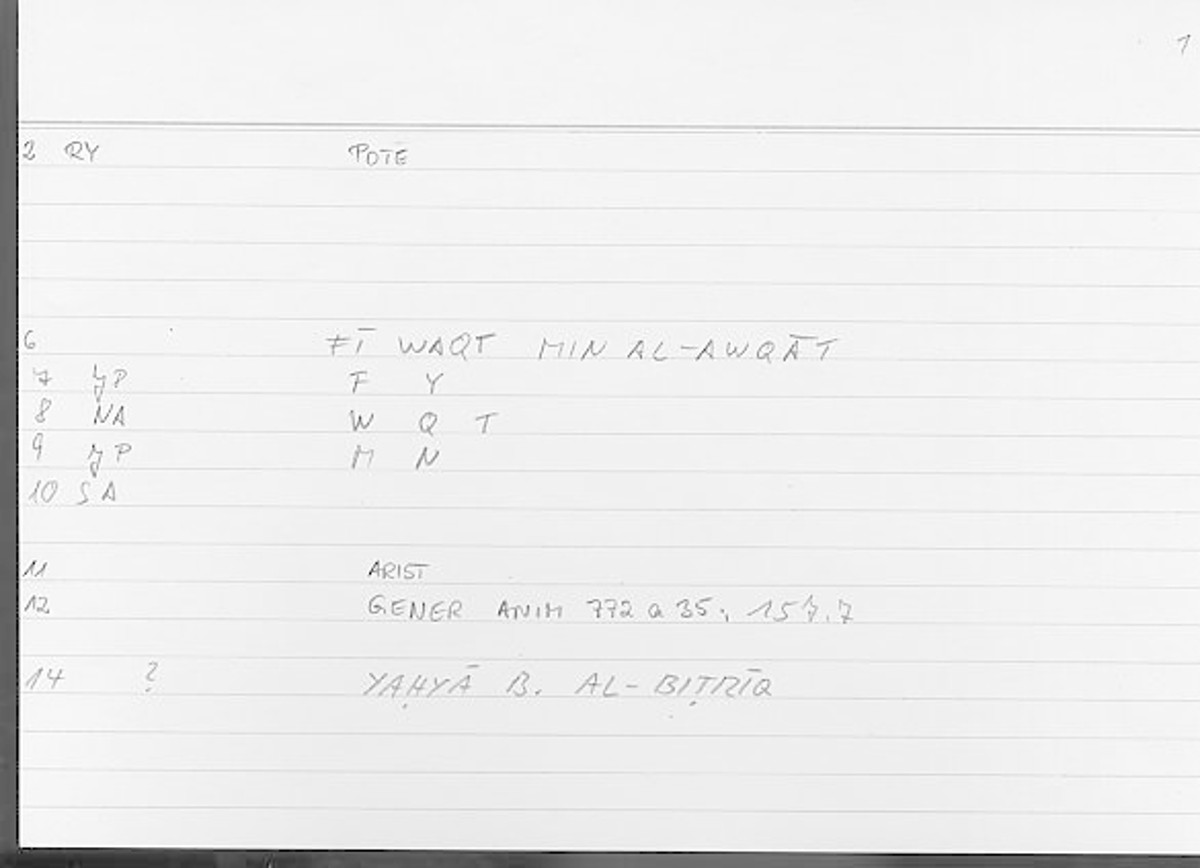 1
2 RY POTE
6 FĪ WAQT MIN AL-AWQĀT
7 JP F Y
8 NA W Q T
9 JP M N
10 SA
11 ARIST
12 GENER ANIM 772 a 35; 157.7
14 ? YAḤYĀ B. AL-BIṬRĪQ